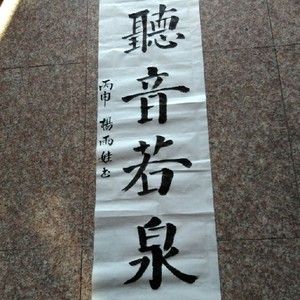 聽音若泉
丙申 楊雨娃书